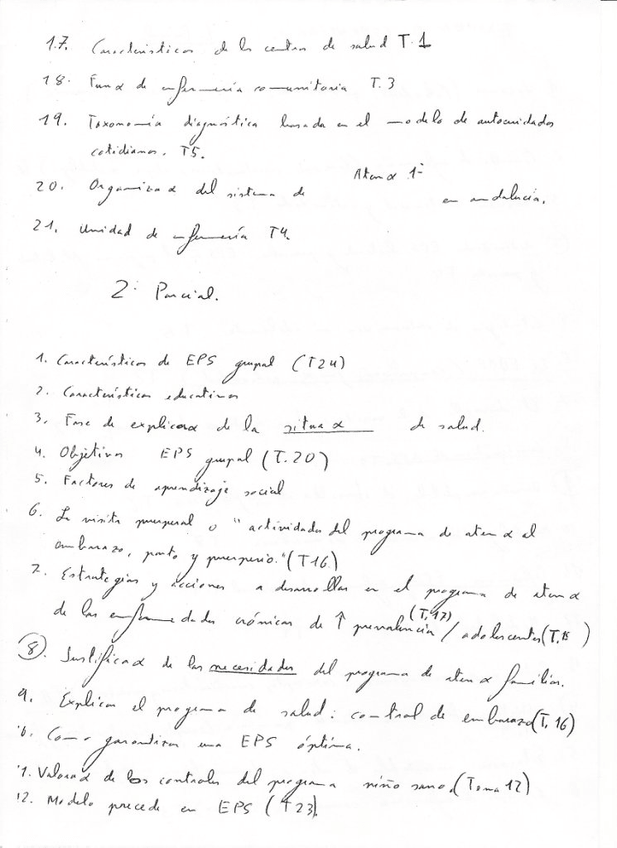 17. Características de los centros de salud T.1
18. Func α de enfermería comunitaria T.3
19. Taxonomía diagnóstica basada en el modelo de autocuidados
cotidianos. T5.
20. Organiza α del sistema de Aten α 1ª en andalucía.
21. Unidad de enfermería T4.
2º Parcial.
1. Características de EPS grupal (T24)
2. Características educativas
3. Fase de explica α de la situa α de salud.
4. Objetivos EPS grupal (T.20)
5. Factores de aprendizaje social
6. La visita puerperal o "actividades del programa de aten α al
embarazo, parto y puerperio." (T16)
7. Estrategias y acciones a desarrollar en el programa de aten α
de las enfermedades crónicas de ↑ prevalencia (T.17) / adolescentes (T.15)
8. Justifica α de las necesidades del programa de aten α familiar.
9. Explicar el programa de salud: control de embarazo (T.16)
10. Como garantizar una EPS óptima.
11. Valora α de los controles del programa niño sano. (Tema 12)
12. Modelo precede en EPS (T23).